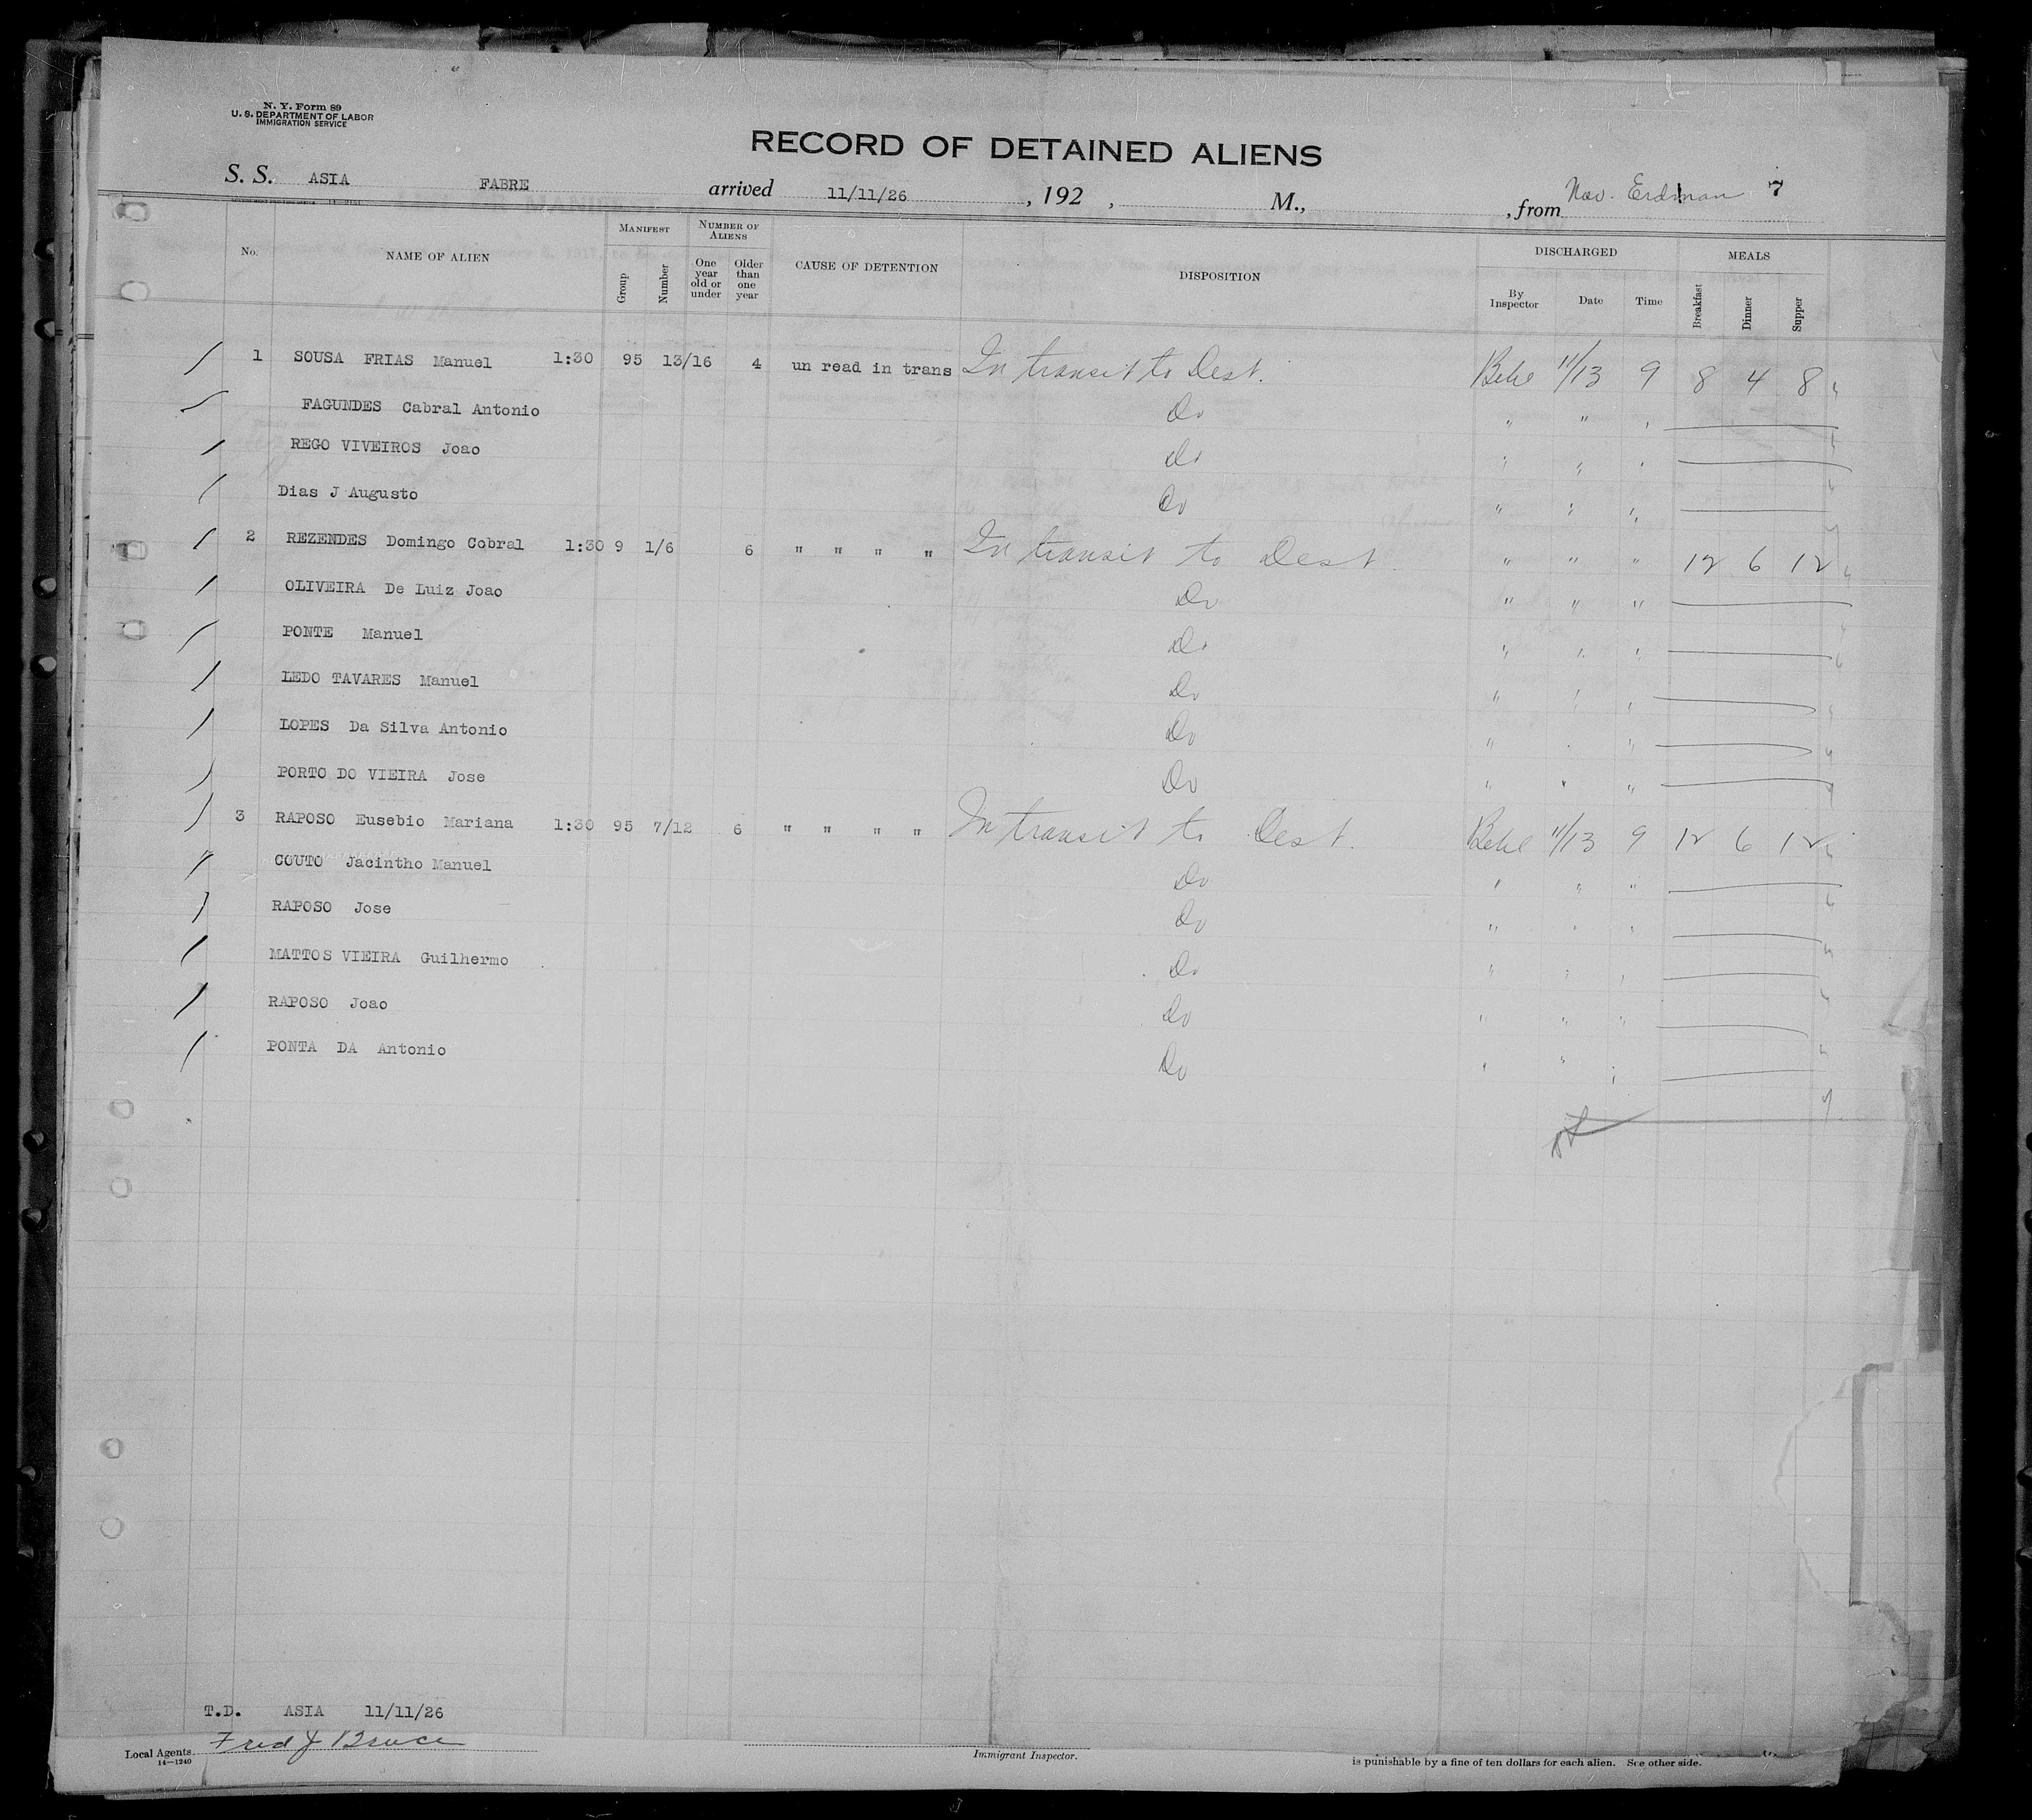 N. Y. Form 89
U. S. DEPARTMENT OF LABOR
IMMIGRATION SERVICE
RECORD OF DETAINED ALIENS
S. S. ASIA FABRE arrived 11/11/26, 192 , M., , from Nov. Erdman 7
No. NAME OF ALIEN MANIFEST Group Number NUMBER OF ALIENS One year old or under Older than one year CAUSE OF DETENTION DISPOSITION DISCHARGED By Inspector Date Time MEALS Breakfast Dinner Supper
1 SOUSA FRIAS Manuel 1:30 95 13/16 4 un read in trans In transit to Dest. 11/13 9 8 4 8
FAGUNDES Cabral Antonio Do " " "
REGO VIVEIROS Joao Do " " "
Dias J Augusto Do " " "
2 REZENDES Domingo Cobral 1:30 9 1/6 6 " " " " In transit to Dest. " " " 12 6 12
OLIVEIRA De Luiz Joao Do " " "
PONTE Manuel Do " " "
LEDO TAVARES Manuel Do " " "
LOPES Da Silva Antonio Do " " "
PORTO DO VIEIRA Jose Do " " "
3 RAPOSO Eusebio Mariana 1:30 95 7/12 6 " " " " In transit to Dest. 11/13 9 12 6 12
COUTO Jacintho Manuel Do " " "
RAPOSO Jose Do " " "
MATTOS VIEIRA Guilhermo Do " " "
RAPOSO Joao Do " " "
PONTA DA Antonio Do " " "
T.D. ASIA 11/11/26
Local Agents. Fred J Bruce
14—1240
Immigrant Inspector.
is punishable by a fine of ten dollars for each alien. See other side.